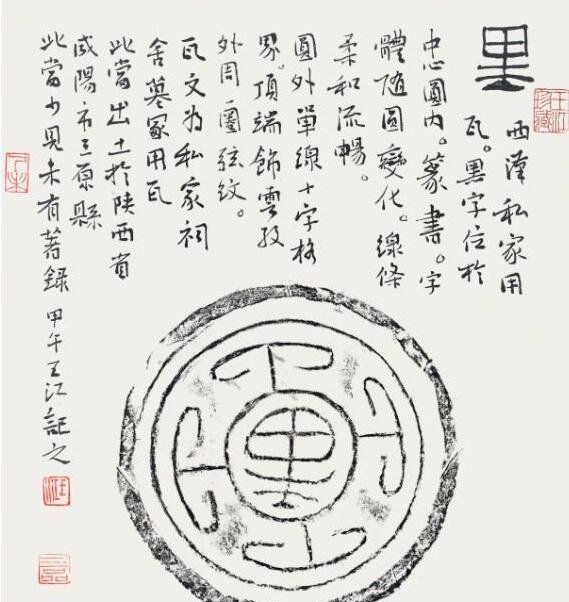 黑
西漢私家用
瓦。黑字位於
中心圓内。篆書。字
體随圓變化。線條
柔和流暢。
圓外單線十字格
界。頂端飾雲紋
外周一圈弦紋。
瓦文为私家祠
舍墓冢用瓦
此當出土於陕西省
咸陽市三原縣
此當少見未有著録 甲午王江記之
王江珍藏
黑